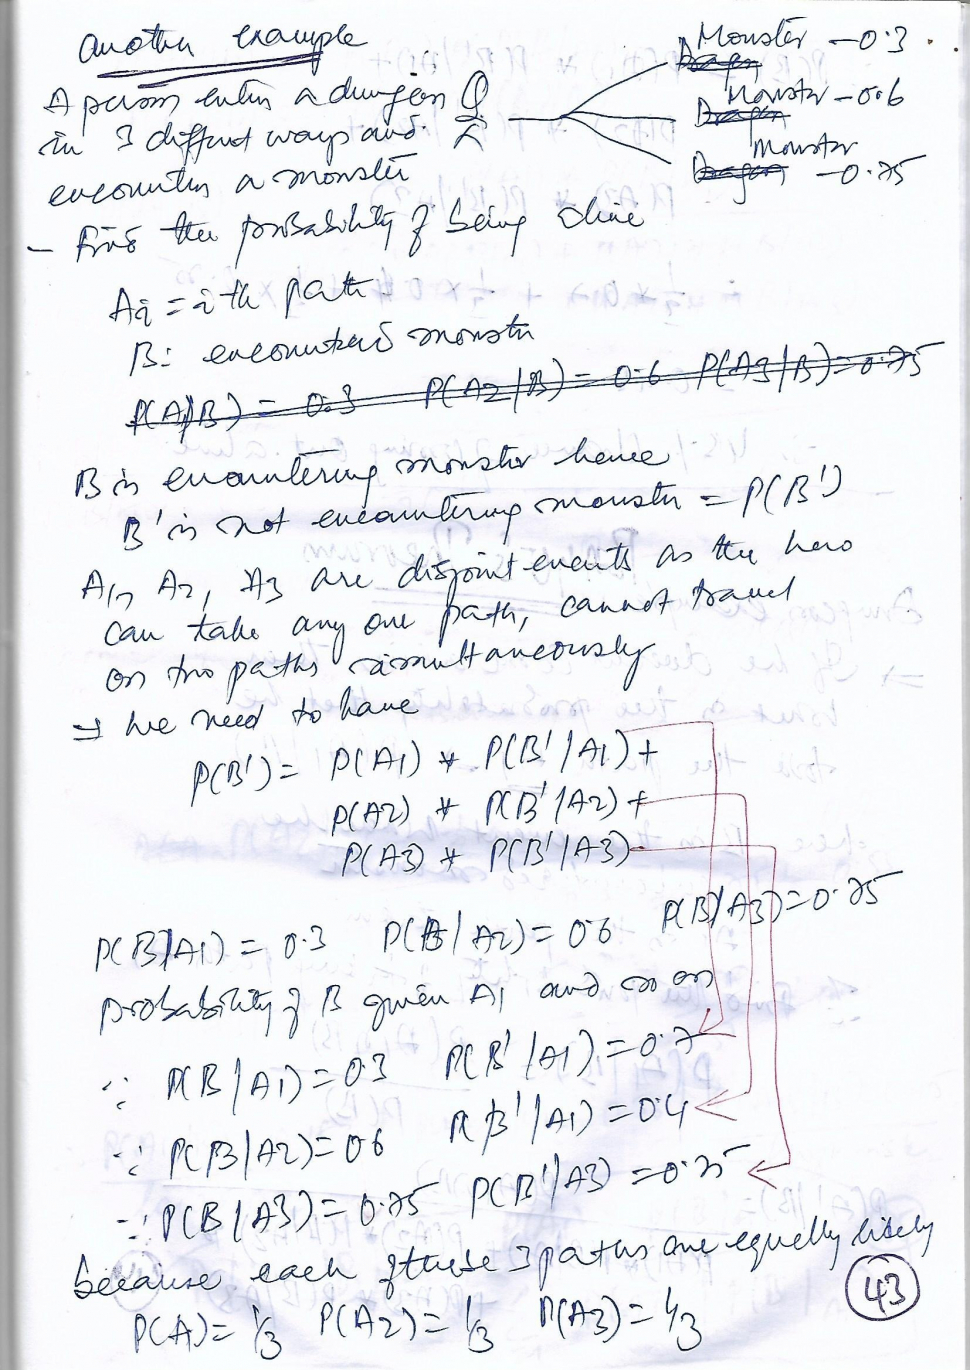 another example
A person enters a dungeon
in 3 diffent ways and
encounters a monster
Monster - 0.3
Dragon
Monster - 0.6
Dragon
Monster
Dragon - 0.75
- Find the probability of being alive
Ai = i th path
B: encountered monster
P(A1/B) = 0.3 P(A2/B) = 0.6 P(A3/B) = 0.75
B is encountering monster hence
B' is not encountering monster = P(B')
A1, A2, A3 are disjoint events as the hero
can take any one path, cannot travel
on two paths simultaneously
⇒ We need to have
P(B') = P(A1) * P(B'/A1) +
P(A2) * P(B'/A2) +
P(A3) * P(B'/A3)
P(B/A1) = 0.3 P(B/A2) = 0.6 P(B/A3) = 0.75
probability of B given A1 and so on
∵ P(B/A1) = 0.3 P(B'/A1) = 0.7
∵ P(B/A2) = 0.6 P(B'/A1) = 0.4
∵ P(B/A3) = 0.75 P(B'/A3) = 0.25
because each of these 3 paths are equally likely
P(A) = 1/3 P(A2) = 1/3 P(A3) = 1/3
43